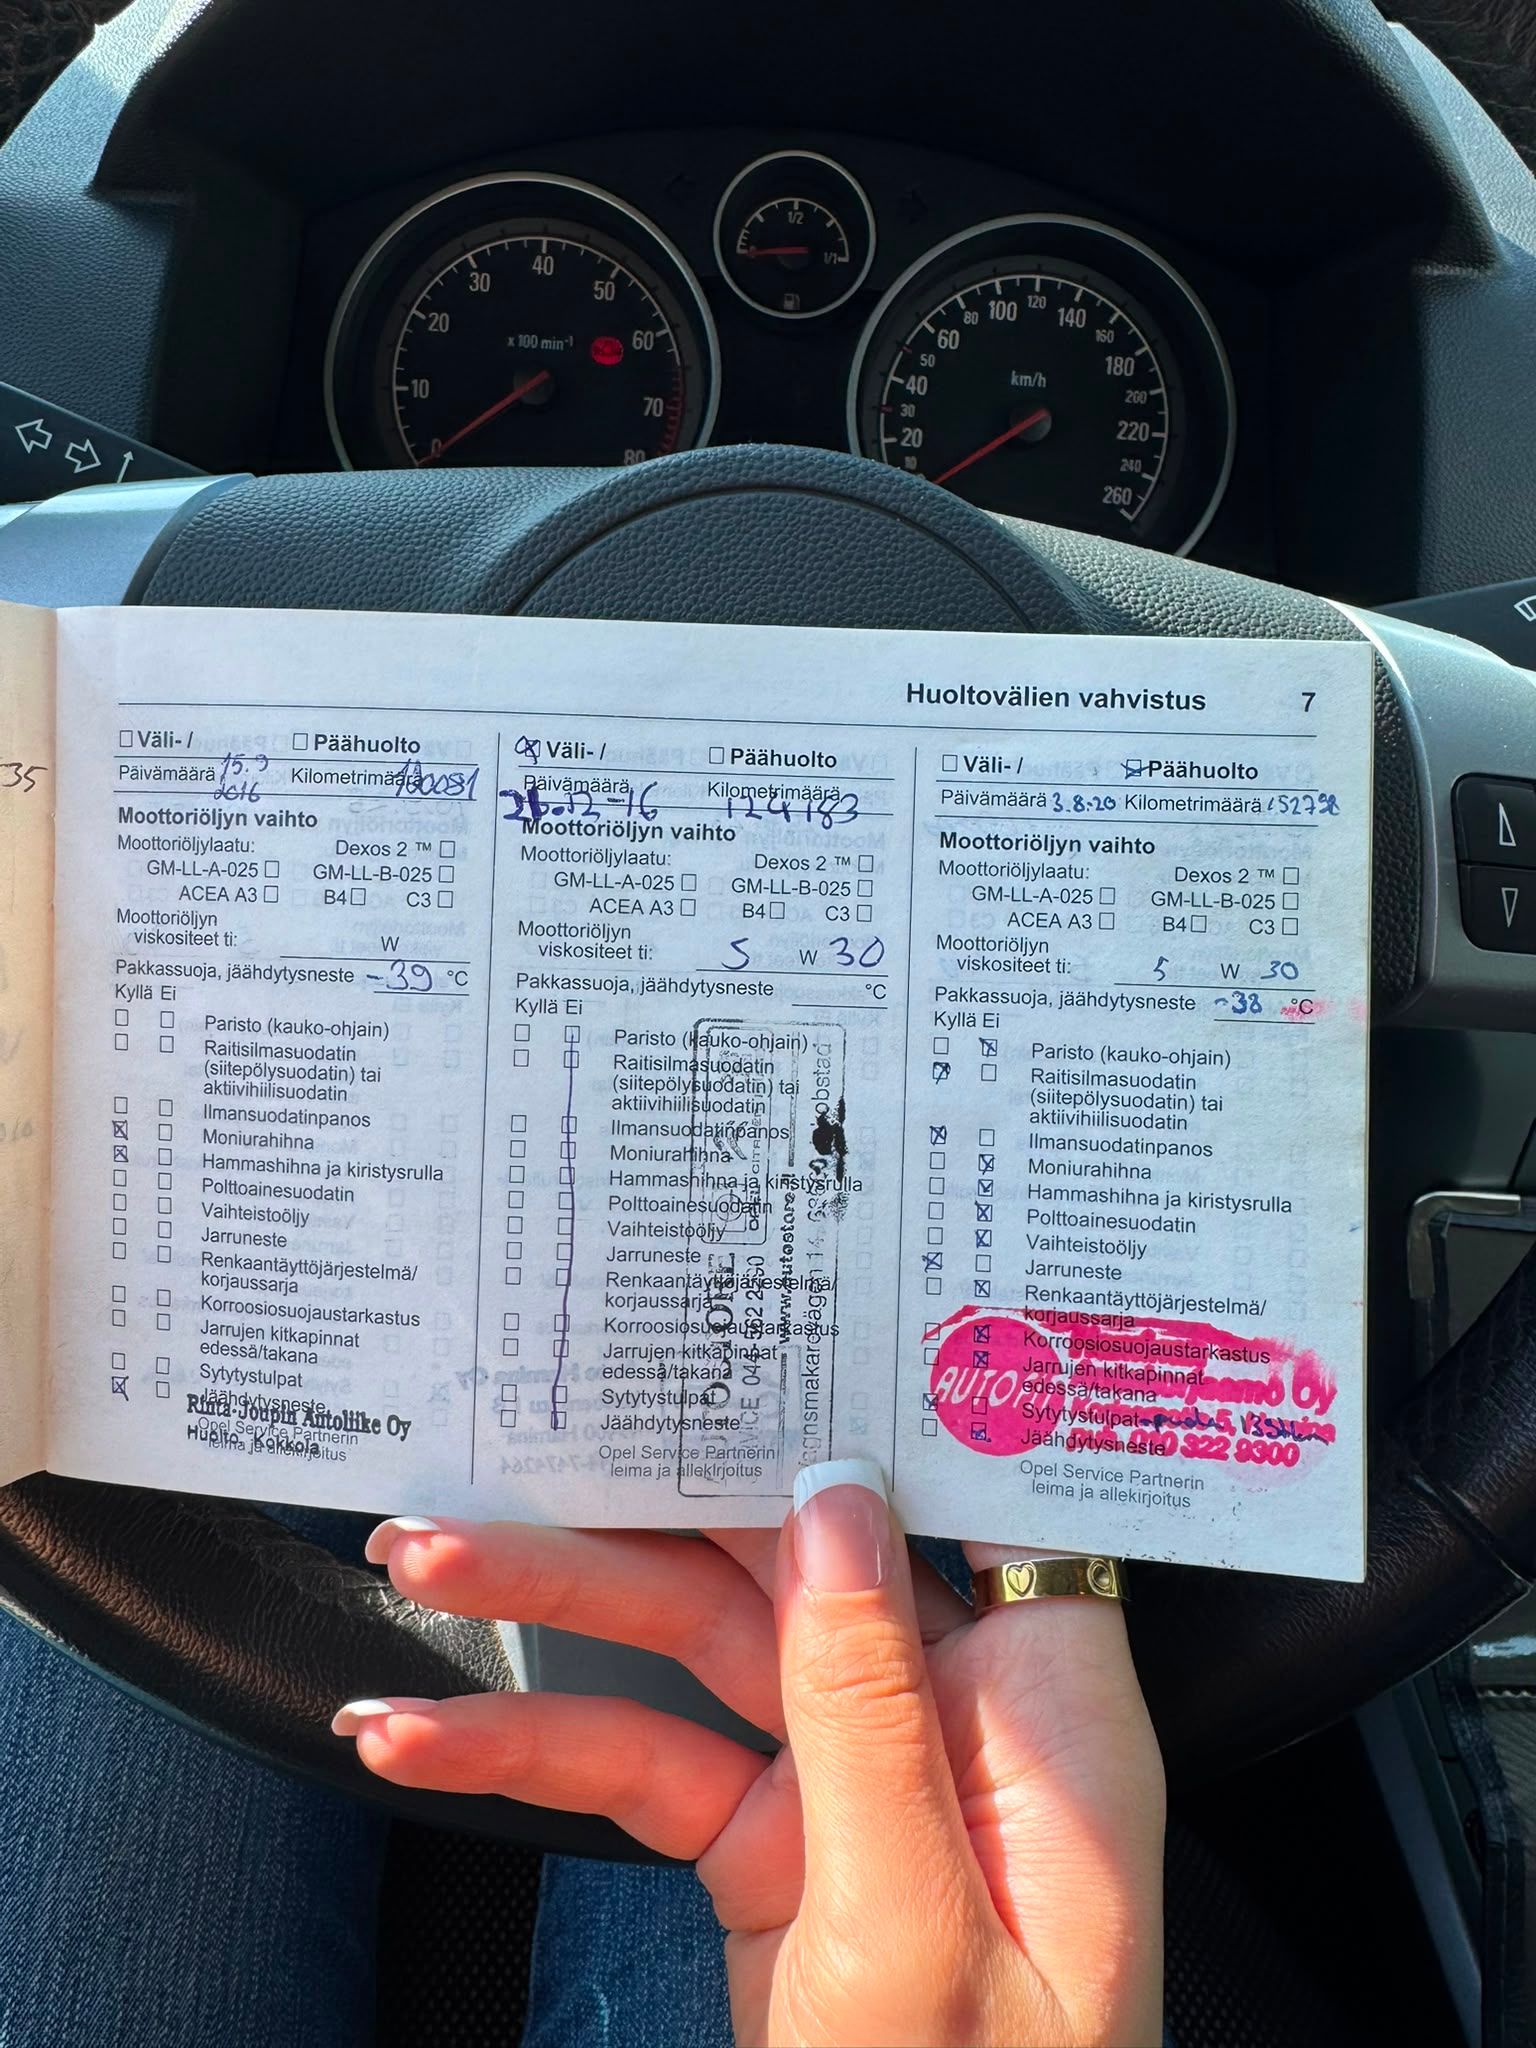 1/2
1/1
10
20
30
40
50
60
70
80
x 100 min⁻¹
10
20
30
40
50
60
80
100
120
140
160
180
200
220
240
260
km/h
35
Huoltovälien vahvistus 7
Väli- / Päähuolto
Päivämäärä 15.9 2016 Kilometrimäärä
Moottoriöljyn vaihto
Moottoriöljylaatu: Dexos 2 ™
GM-LL-A-025 GM-LL-B-025
ACEA A3 B4 C3
Moottoriöljyn
viskositeet ti: W
Pakkassuoja, jäähdytysneste -39 °C
Kyllä Ei
Paristo (kauko-ohjain)
Raitisilmasuodatin
(siitepölysuodatin) tai
aktiivihiilisuodatin
Ilmansuodatinpanos
Moniurahihna
Hammashihna ja kiristysrulla
Polttoainesuodatin
Vaihteistoöljy
Jarruneste
Renkaantäyttöjärjestelmä/
korjaussarja
Korroosiosuojaustarkastus
Jarrujen kitkapinnat
edessä/takana
Sytytystulpat
Jäähdytysneste
Rinta-Joupin Autoliike Oy
Huolto, Kokkola
Opel Service Partnerin
leima ja allekirjoitus
Väli- / Päähuolto
Päivämäärä Kilometrimäärä
124183
Moottoriöljyn vaihto
Moottoriöljylaatu: Dexos 2 ™
GM-LL-A-025 GM-LL-B-025
ACEA A3 B4 C3
Moottoriöljyn
viskositeet ti: 5 W 30
Pakkassuoja, jäähdytysneste °C
Kyllä Ei
Paristo (kauko-ohjain)
Raitisilmasuodatin
(siitepölysuodatin) tai
aktiivihiilisuodatin
Ilmansuodatinpanos
Moniurahihna
Hammashihna ja kiristysrulla
Polttoainesuodatin
Vaihteistoöljy
Jarruneste
Renkaantäyttöjärjestelmä/
korjaussarja
Korroosiosuojaustarkastus
Jarrujen kitkapinnat
edessä/takana
Sytytystulpat
Jäähdytysneste
www.autostore.fi
Opel Service Partnerin
leima ja allekirjoitus
Väli- / Päähuolto
Päivämäärä 3.8.20 Kilometrimäärä 152798
Moottoriöljyn vaihto
Moottoriöljylaatu: Dexos 2 ™
GM-LL-A-025 GM-LL-B-025
ACEA A3 B4 C3
Moottoriöljyn
viskositeet ti: 5 W 30
Pakkassuoja, jäähdytysneste -38 °C
Kyllä Ei
Paristo (kauko-ohjain)
Raitisilmasuodatin
(siitepölysuodatin) tai
aktiivihiilisuodatin
Ilmansuodatinpanos
Moniurahihna
Hammashihna ja kiristysrulla
Polttoainesuodatin
Vaihteistoöljy
Jarruneste
Renkaantäyttöjärjestelmä/
korjaussarja
Korroosiosuojaustarkastus
Jarrujen kitkapinnat
edessä/takana
Sytytystulpat
Jäähdytysneste
Oy
Opel Service Partnerin
leima ja allekirjoitus